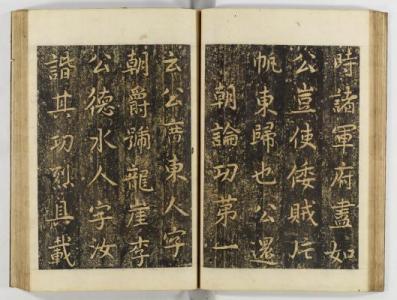 時諸軍府盡如
公豈使倭賊片
帆東歸也公還
朝論功第一
玄公廣東人字
朝爵號龍崖李
公德水人字汝
諧其功烈具載